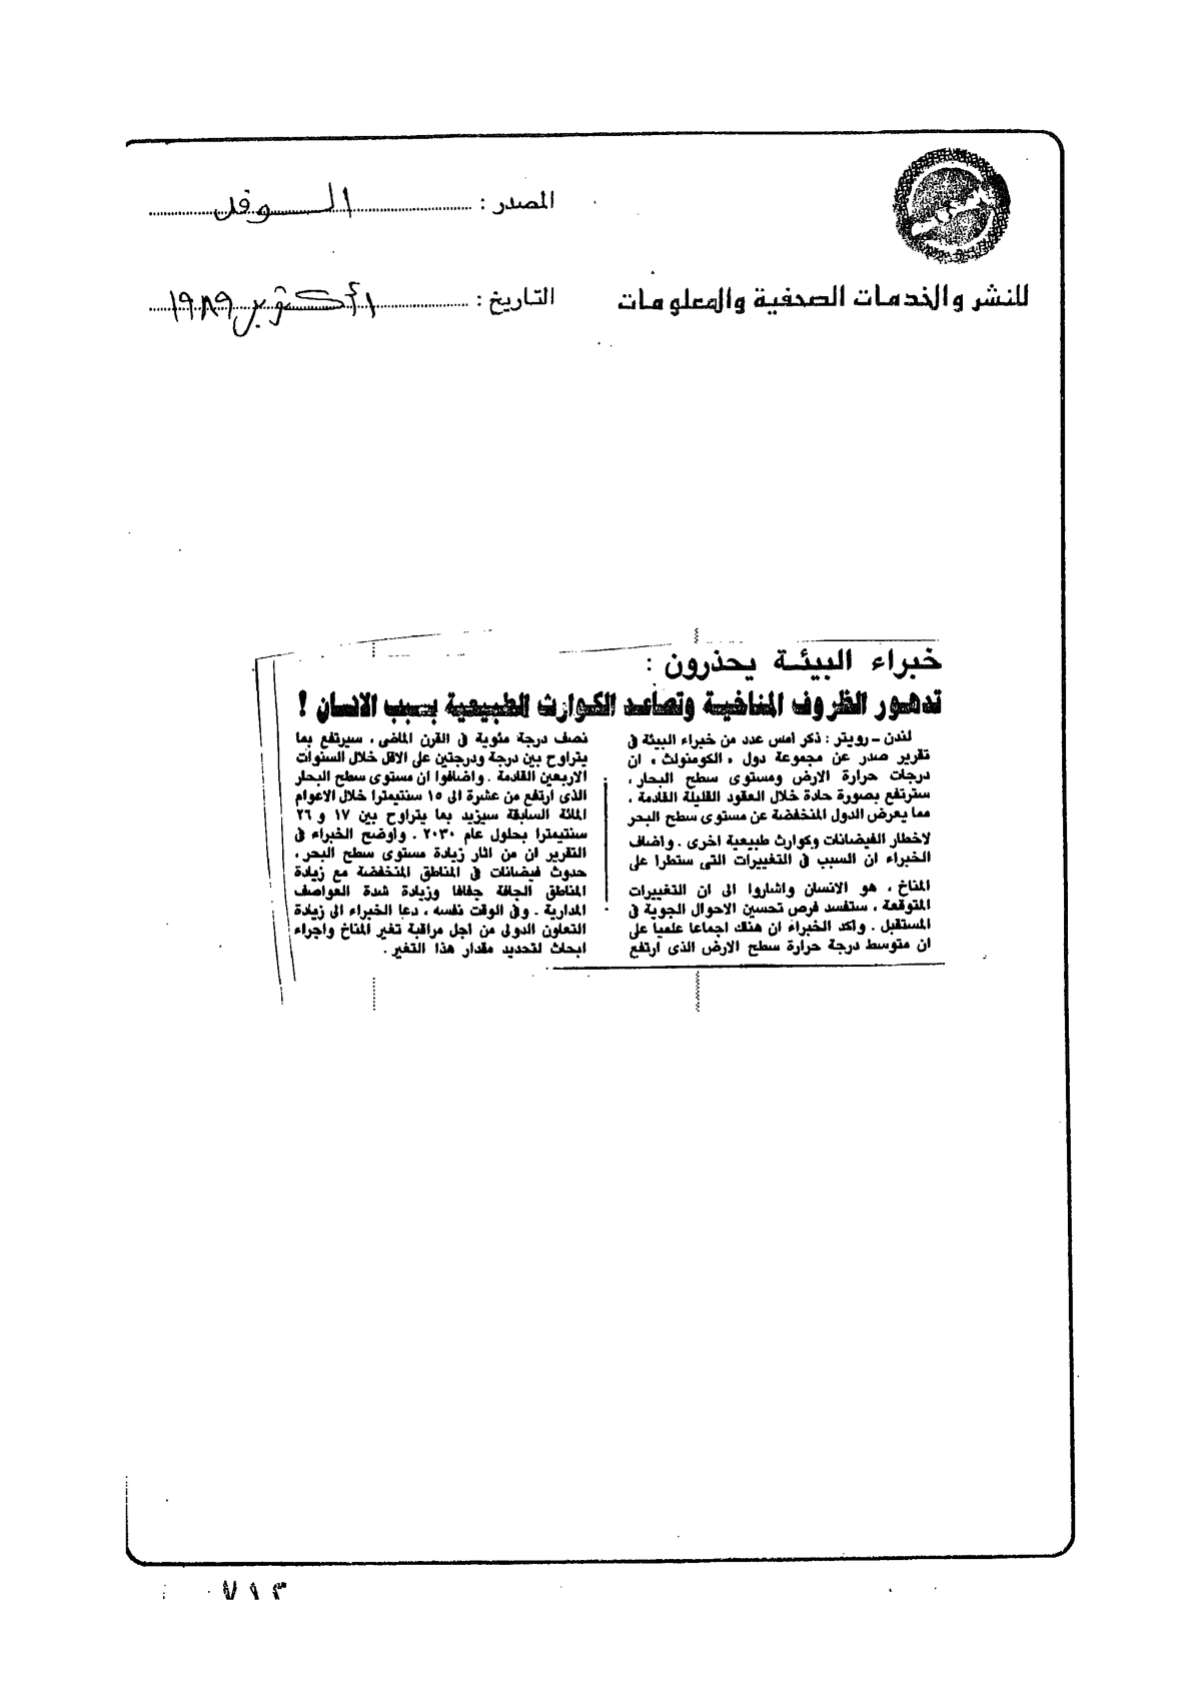 المصدر : الوفد
للنشر والخدمات الصحفية والمعلومات
التاريخ : ١ أكتوبر ١٩٨٩
خبراء البيئة يحذرون :
تدهور الظروف المناخية وتصاعد الكوارث الطبيعية بسبب الانسان !
لندن - رويتر : ذكر امس عدد من خبراء البيئة فى
تقرير صدر عن مجموعة دول « الكومنولث » ان
درجات حرارة الارض ومستوى سطح البحار ،
سترتفع بصورة حادة خلال العقود القليلة القادمة ،
مما يعرض الدول المنخفضة عن مستوى سطح البحر
لاخطار الفيضانات وكوارث طبيعية اخرى . واضاف
الخبراء ان السبب فى التغييرات التى ستطرا على
المناخ ، هو الانسان واشاروا الى ان التغييرات
المتوقعة ، ستفسد فرص تحسين الاحوال الجوية فى
المستقبل . واكد الخبراء ان هناك اجماعا علميا على
ان متوسط درجة حرارة سطح الارض الذى ارتفع
نصف درجة مئوية فى القرن الماضى ، سيرتفع بما
يتراوح بين درجة ودرجتين على الاقل خلال السنوات
الاربعين القادمة . واضافوا ان مستوى سطح البحار
الذى ارتفع من عشرة الى ١٥ سنتيمترا خلال الاعوام
المائة السابقة سيزيد بما يتراوح بين ١٧ و ٢٦
سنتيمترا بحلول عام ٢٠٣٠ . واوضح الخبراء فى
التقرير ان من اثار زيادة مستوى سطح البحر ،
حدوث فيضانات فى المناطق المنخفضة مع زيادة
المناطق الجافة جفافا وزيادة شدة العواصف
المدارية . وفى الوقت نفسه ، دعا الخبراء الى زيادة
التعاون الدولى من اجل مراقبة تغير المناخ واجراء
ابحاث لتحديد مقدار هذا التغير .
٧١٣